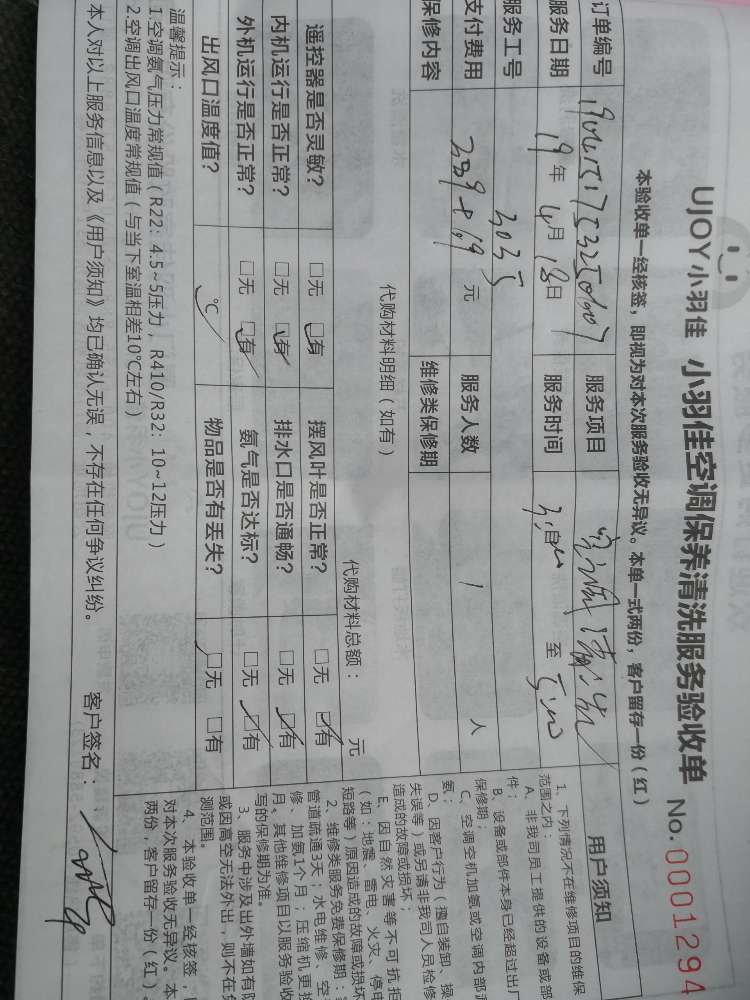 UJOY小羽佳 小羽佳空调保养清洗服务验收单 No.0001294
本验收单一经核签，即视为对本次服务验收无异议。本单一式两份，客户留存一份（红）
订单编号 服务项目
服务日期 19年4月18日 服务时间 至
服务工号 3035
支付费用 元 服务人数 1人
保修内容 维修类保修期
代购材料明细（如有） 代购材料总额： 元
遥控器是否灵敏？ □无 □有 摆风叶是否正常？ □无 □有
内机运行是否正常？ □无 □有 排水口是否通畅？ □无 □有
外机运行是否正常？ □无 □有 氨气是否达标？ □无 □有
出风口温度值？ ℃ 物品是否有丢失？ □无 □有
温馨提示：
1.空调氨气压力常规值（R22：4.5~5压力，R410/R32：10~12压力）
2.空调出风口温度常规值（与当下室温相差10℃左右）
本人对以上服务信息以及《用户须知》均已确认无误，不存在任何争议纠纷。 客户签名：
用户须知
1、下列情况不在维修项目的维保
范围之内：
A、非我司员工提供的设备或部
件；
B、设备或部件本身已经超过出厂
保修期；
C、空调空机加氨或空调内部
氨；
D、因客户行为（擅自装卸、操
失误等）或另请非我司人员检修
造成的故障或损坏；
E、因自然灾害等不可抗拒
（如：地震、雷电、火灾、停电
短路等）原因造成的故障或损坏
2、维修类服务免费保修期：
管道疏通3天；水电维修、空
修、加氨1个月；压缩机更换
月。其他维修项目以服务验收
写的保修期为准。
3、服务中涉及出外墙如有
或因高空无法外出，则不在
测范围。
4、本验收单一经核签，
对本次服务验收无异议。本
两份，客户留存一份（红）。